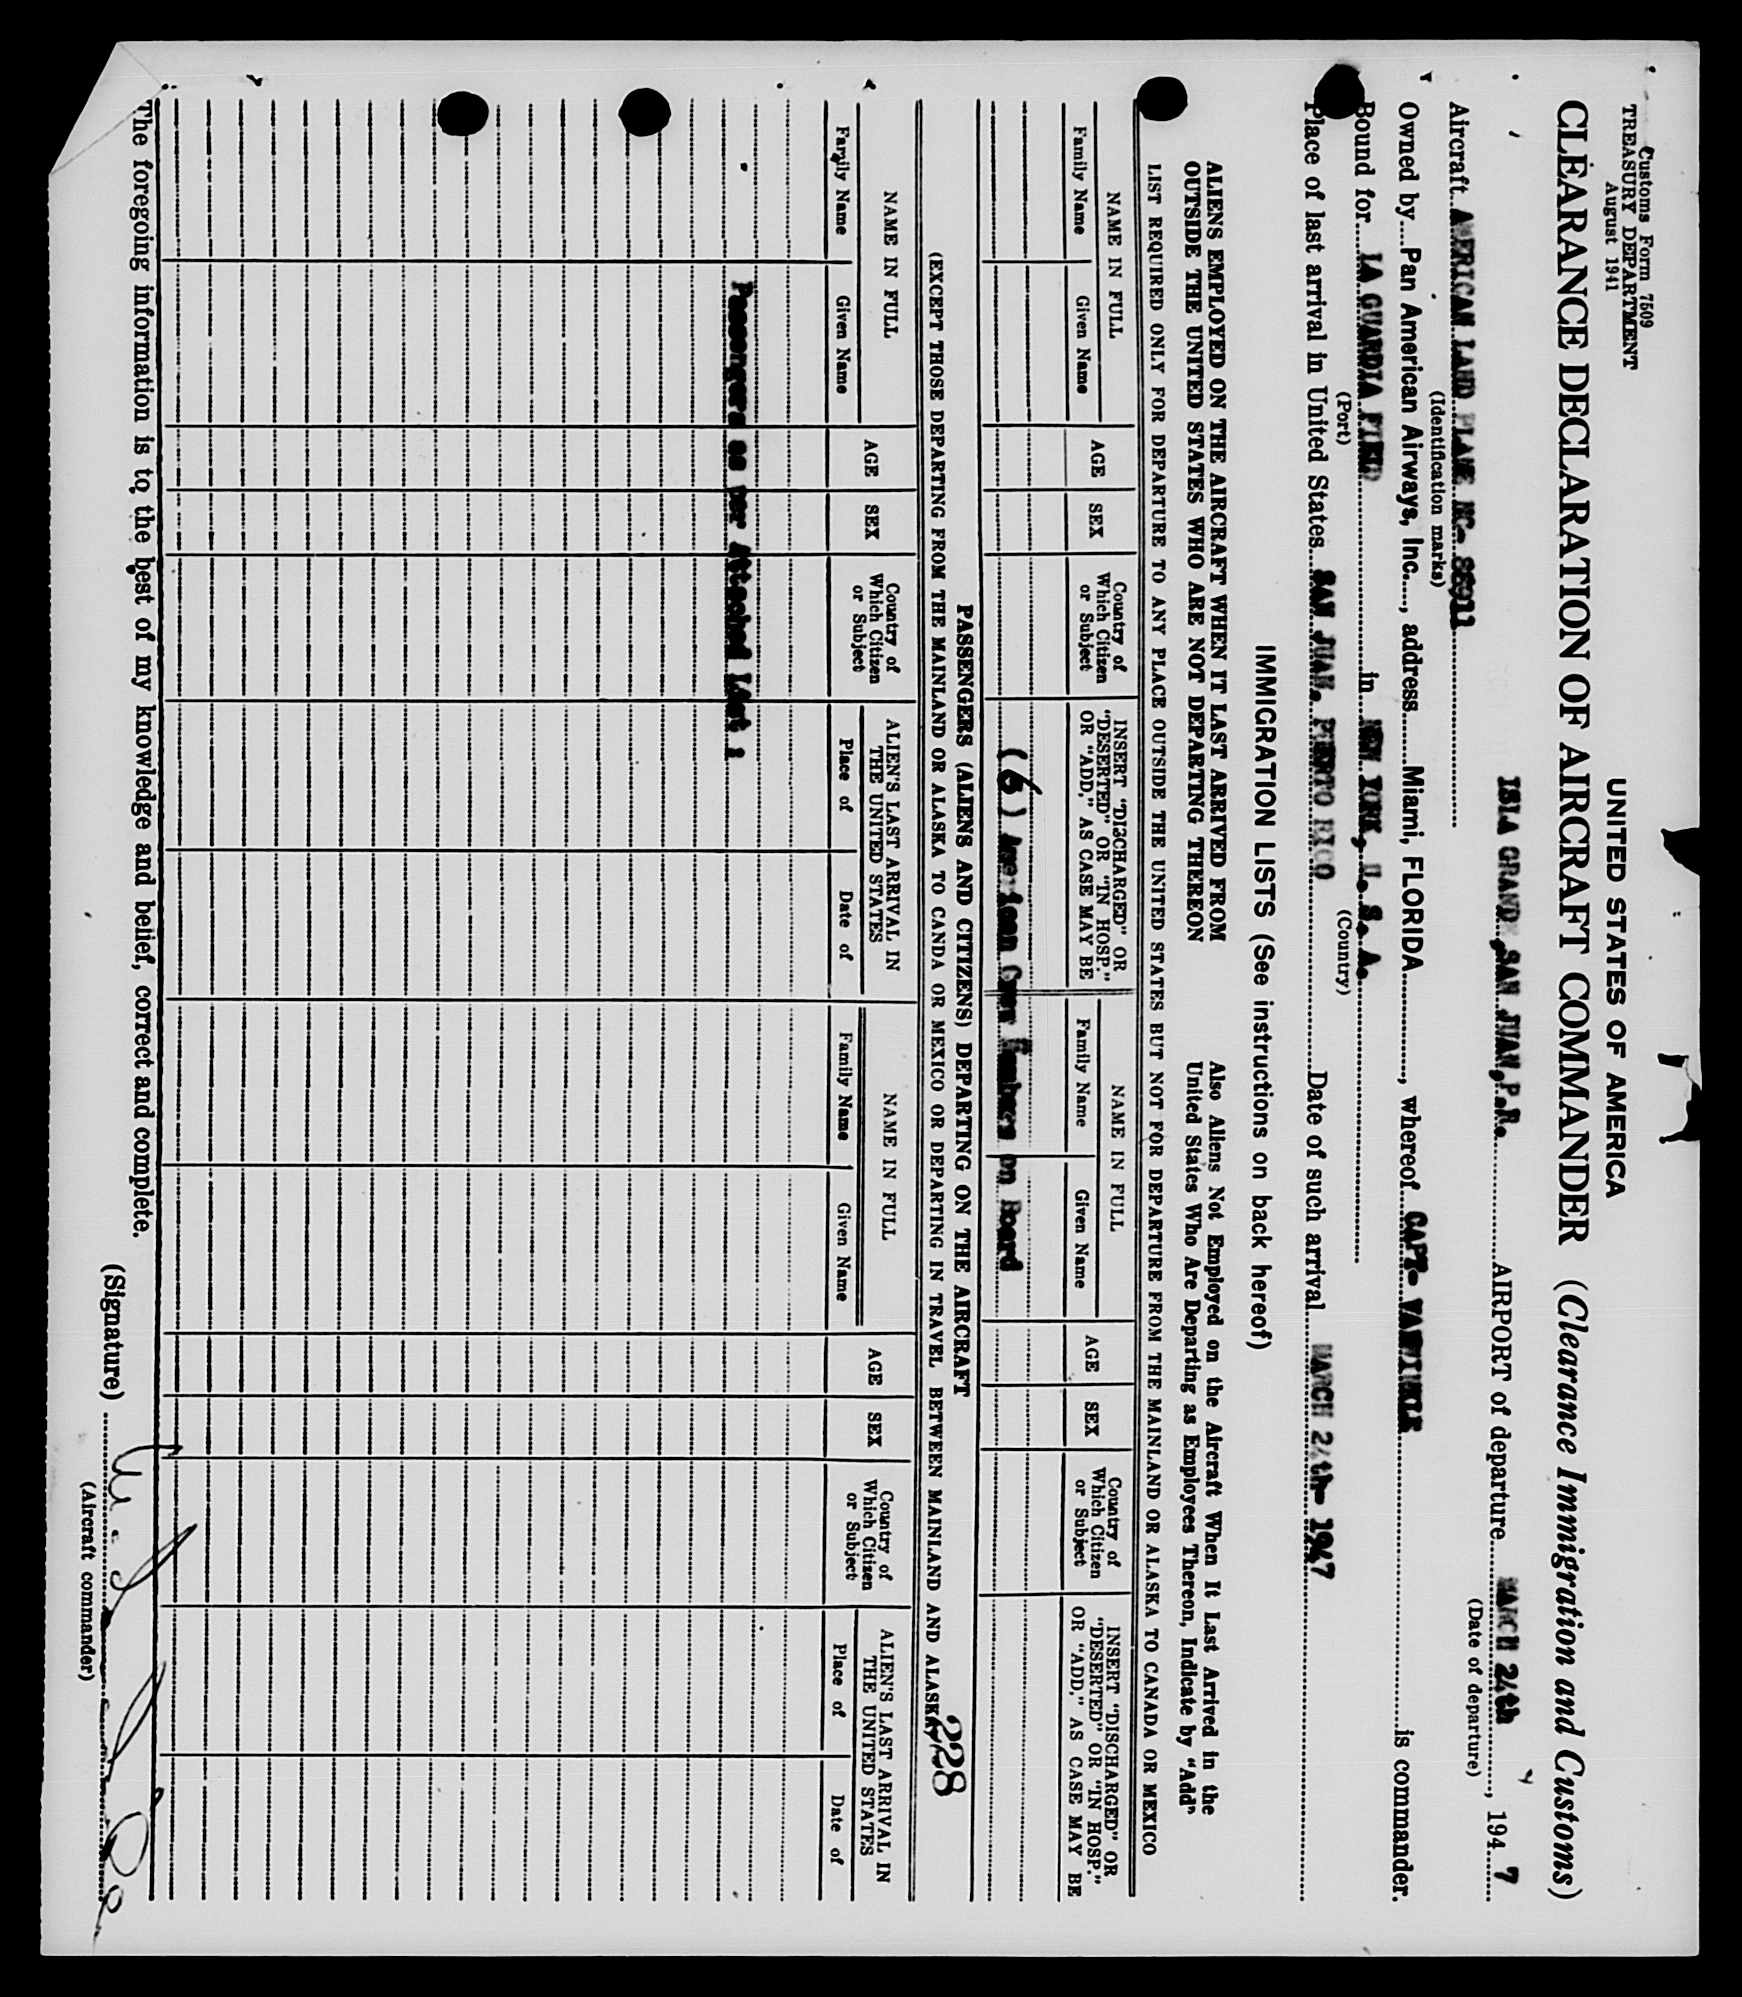 Customs Form 7509
TREASURY DEPARTMENT
August 1941
UNITED STATES OF AMERICA
CLEARANCE DECLARATION OF AIRCRAFT COMMANDER (Clearance Immigration and Customs)
ISLA GRANDE, SAN JUAN, P.R. AIRPORT of departure MARCH 24th, 1947
(Date of departure)
Aircraft AMERICAN LAND PLANE NC- 88911
(Identification marks)
Owned by Pan American Airways, Inc., address Miami, FLORIDA, whereof CAPT- VANWINKLE is commander.
Bound for LA GUARDIA FIELD in NEW YORK, U. S. A.
(Port) (Country)
Place of last arrival in United States SAN JUAN, PUERTO RICO Date of such arrival MARCH 24th- 1947
IMMIGRATION LISTS (See instructions on back hereof)
ALIENS EMPLOYED ON THE AIRCRAFT WHEN IT LAST ARRIVED FROM Also Aliens Not Employed on the Aircraft When It Last Arrived in the
OUTSIDE THE UNITED STATES WHO ARE NOT DEPARTING THEREON United States Who Are Departing as Employees Thereon, Indicate by "Add"
LIST REQUIRED ONLY FOR DEPARTURE TO ANY PLACE OUTSIDE THE UNITED STATES BUT NOT FOR DEPARTURE FROM THE MAINLAND OR ALASKA TO CANADA OR MEXICO
NAME IN FULL
Family Name Given Name
AGE
SEX
Country of
Which Citizen
or Subject
INSERT "DISCHARGED" OR
"DESERTED" OR "IN HOSP."
OR "ADD," AS CASE MAY BE
NAME IN FULL
Family Name Given Name
AGE
SEX
Country of
Which Citizen
or Subject
INSERT "DISCHARGED" OR
"DESERTED" OR "IN HOSP."
OR "ADD," AS CASE MAY BE
(6) American Crew Members on Board
PASSENGERS (ALIENS AND CITIZENS) DEPARTING ON THE AIRCRAFT
228
(EXCEPT THOSE DEPARTING FROM THE MAINLAND OR ALASKA TO CANDA OR MEXICO OR DEPARTING IN TRAVEL BETWEEN MAINLAND AND ALASKA)
NAME IN FULL
Family Name Given Name
AGE
SEX
Country of
Which Citizen
or Subject
ALIEN'S LAST ARRIVAL IN
THE UNITED STATES
Place of Date of
NAME IN FULL
Family Name Given Name
AGE
SEX
Country of
Which Citizen
or Subject
ALIEN'S LAST ARRIVAL IN
THE UNITED STATES
Place of Date of
Passengers as per Attached List :
The foregoing information is to the best of my knowledge and belief, correct and complete.
(Signature)
(Aircraft commander)